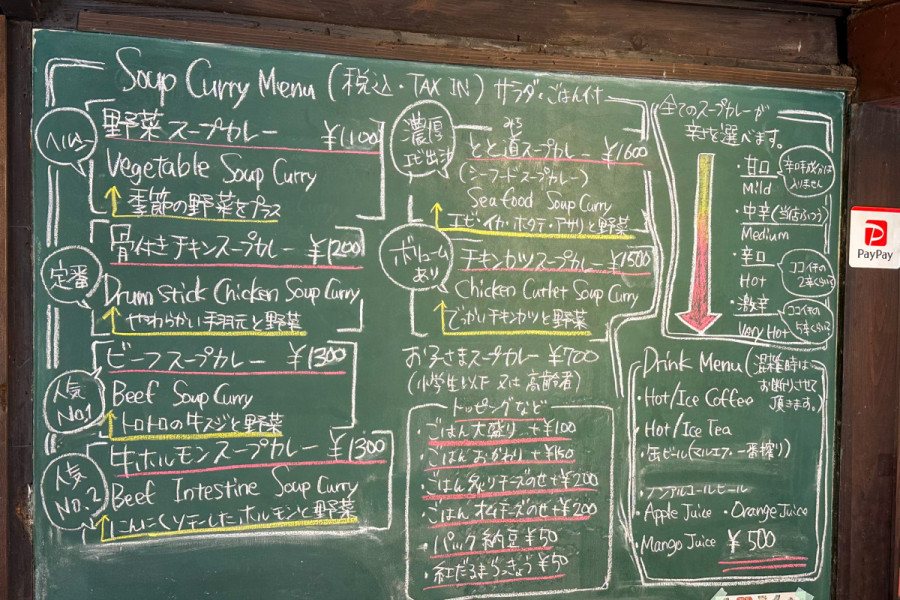 Soup Curry Menu (税込・TAX IN) サラダ・ごはん付
ヘルシー
野菜スープカレー ¥1100
Vegetable Soup Curry
季節の野菜をプラス
定番
骨付きチキンスープカレー ¥1200
Drum stick Chicken Soup Curry
やわらかい手羽元と野菜
人気
No.1
ビーフスープカレー ¥1300
Beef Soup Curry
トロトロの牛スジと野菜
人気
No.2
牛ホルモンスープカレー ¥1300
Beef Intestine Soup Curry
にんにくソテーしたホルモンと野菜
濃厚
エビ出汁
みち
とと道スープカレー ¥1600
(シーフードスープカレー)
Sea food Soup Curry
エビ・イカ・ホタテ・アサリと野菜
ボリューム
あり
チキンカツスープカレー ¥1500
Chicken Cutlet Soup Curry
でっかいチキンカツと野菜
お子さまスープカレー ¥700
(小学生以下 又は 高齢者)
トッピングなど
・ごはん大盛り +¥100
・ごはんおかわり +¥150
・ごはん炙りチーズのせ +¥200
・ごはん チーズのせ +¥200
・パック納豆 ¥50
・紅だるまらっきょう ¥50
全てのスープカレーが
辛さを選べます。
・甘口
Mild
辛味成分は
入りません
・中辛(当店ふつう)
Medium
・辛口
Hot
ココイチの
2辛くらい
・激辛
Very Hot
ココイチの
5辛くらい
Drink Menu (混雑時は
お断りさせて
頂きます。)
・Hot/Ice Coffee
・Hot/Ice Tea
・缶ビール(マルエフ・一番搾り)
・ノンアルコールビール
・Apple Juice ・Orange Juice
・Mango Juice ¥500
PayPay